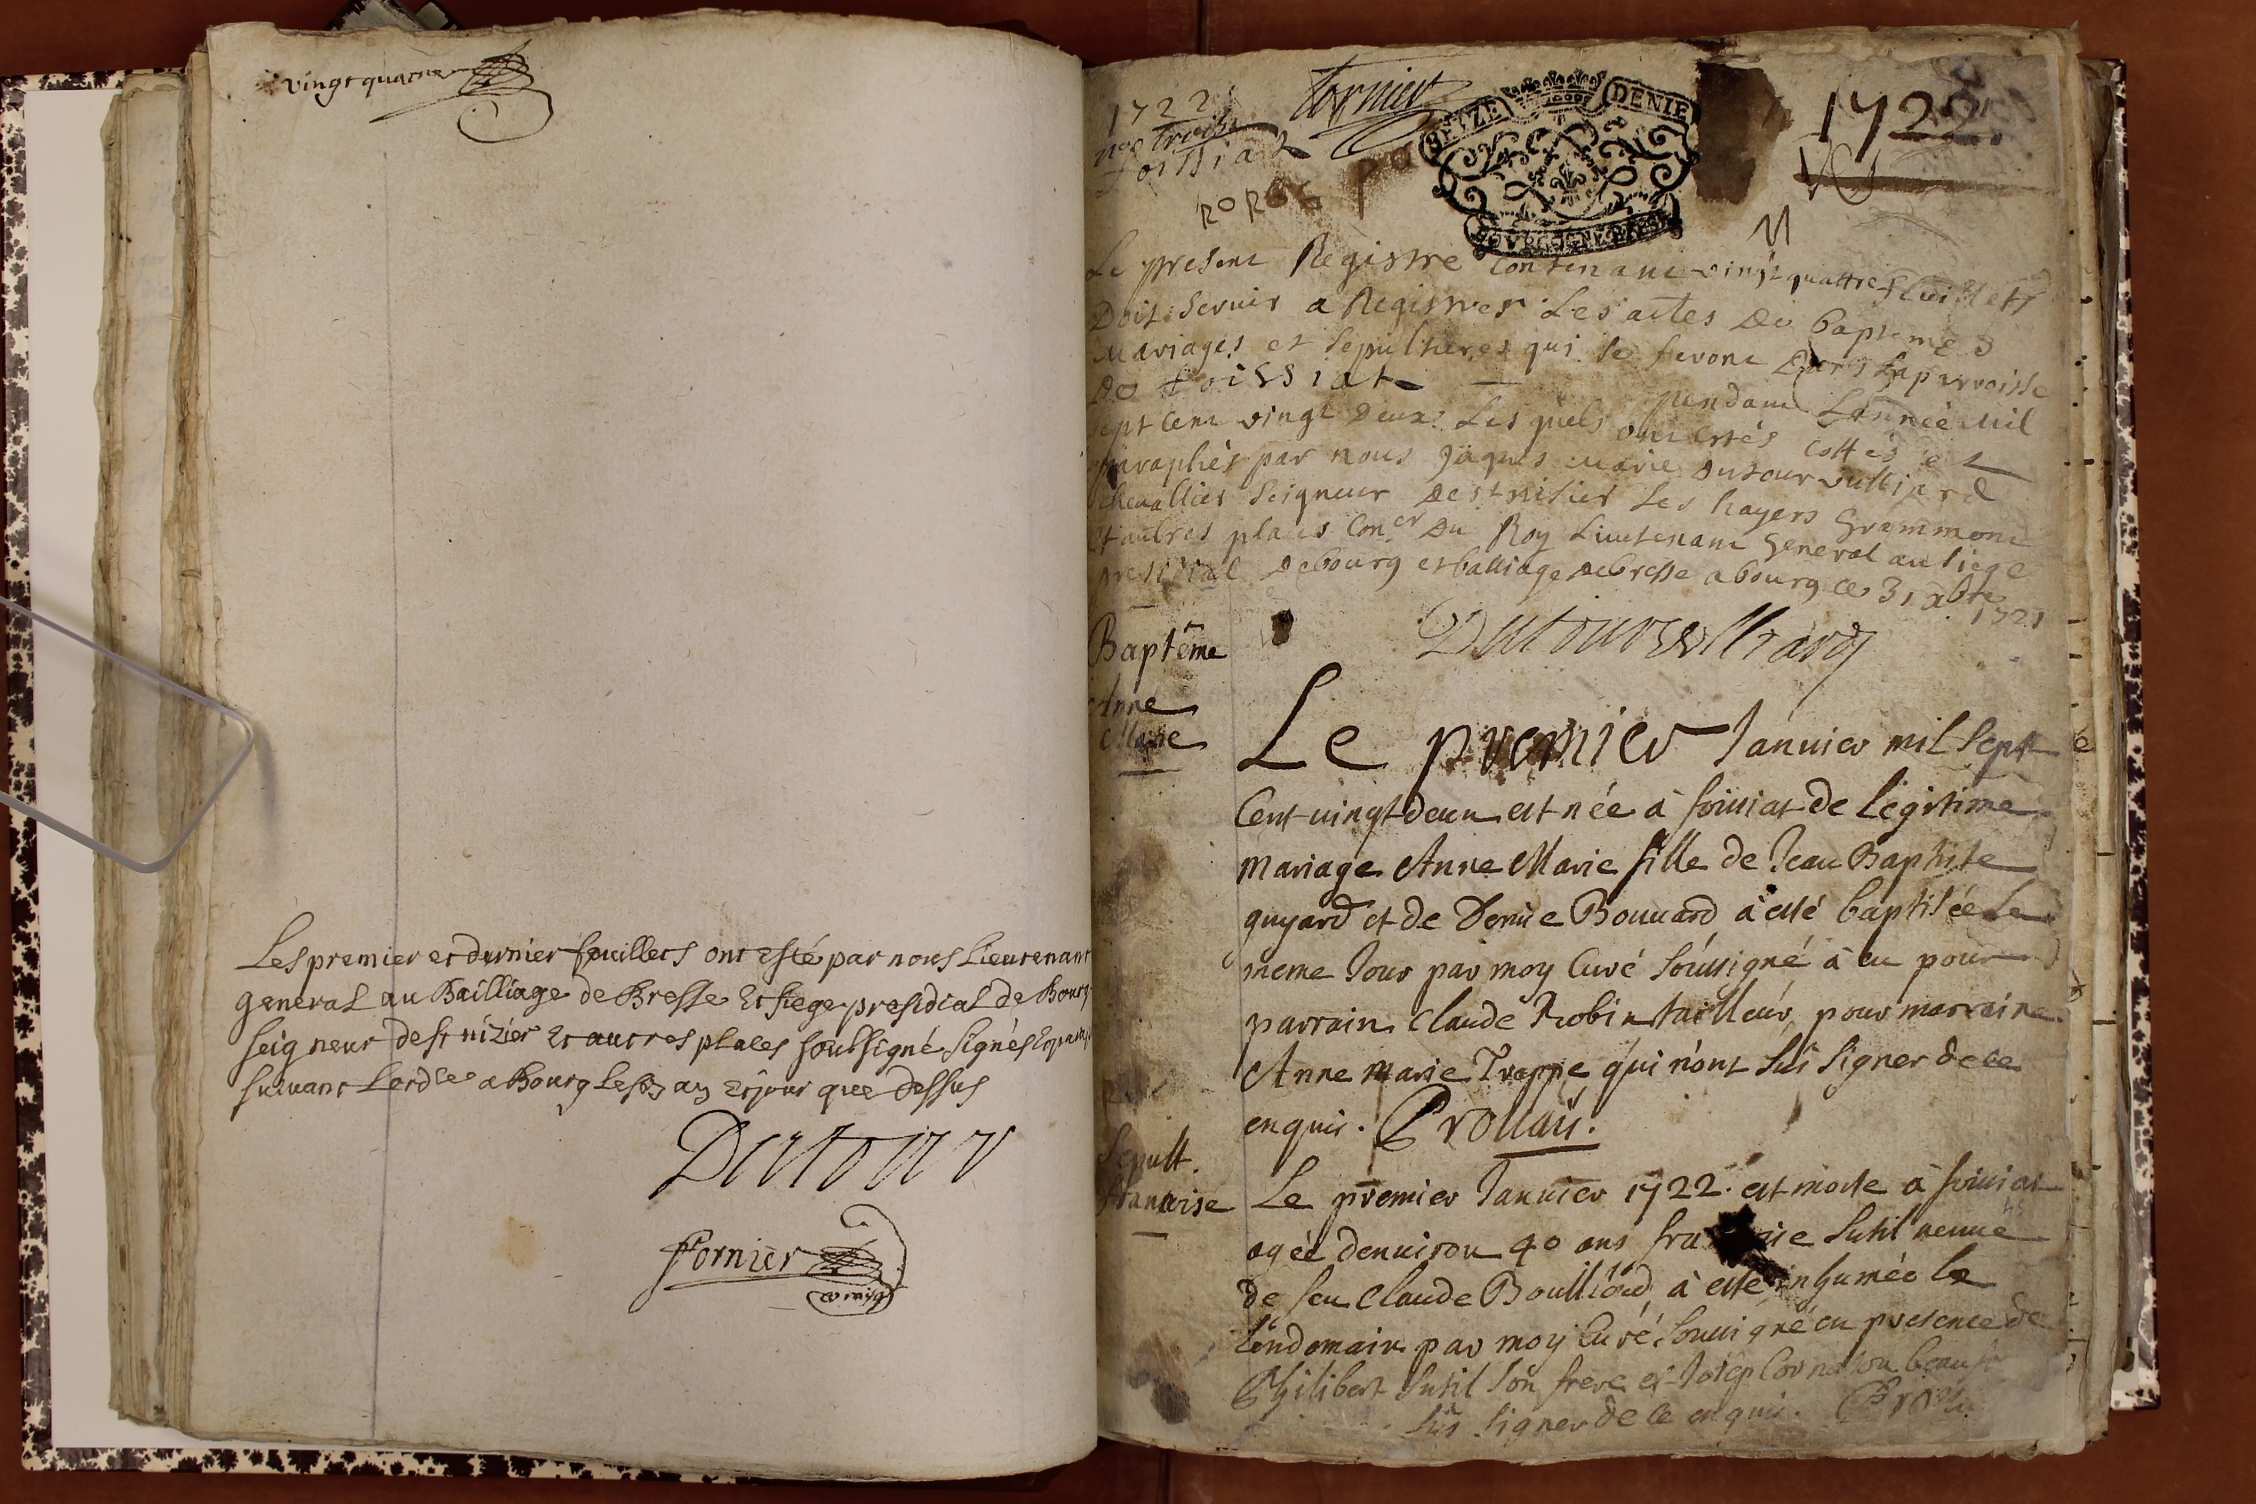 vingt quatre
Les premier et dernier feuillets ont esté par nous Lieutenant
general au Bailliage de Bresse Et siege presidial de Bourg
seigneur de st nizier Et autres places soubsigné signés Et paraph
suivant Lord.ce a Bourg les an et jour que dessus
Dutour
Fornier
1722
Foissiat
Fornier
SEIZE DENIE
BOURGOGNE BRESSE
1722.
Le present Registre Contenant vingt quattre feuillets
Doit servir a Registrer Les actes De baptemes
mariages et sepultures qui se feront Dans La parroisse
De foissiat pendant Lannée mil
sept cent vingt Deux Les quels ont estés cottés et
paraphés par nous Jaques marie Dutour vulliard
chevallier seigneur De st nisier Les hayers Grammont
Et autres places Con.er Du Roy Lieutenant General au siege
presidial De bourg et balliage De bresse a bourg ce 31 xbre
1721
Dutour vulliard
Baptême
Anne
Marie
Le premier Januier mil sept
Cent vingt deux est née à foissiat de Légitime
mariage Anne Marie fille de Jean Baptiste
guyard et de Denise Bouuard à esté baptisée Le
meme Jour par moy Curé soussigné à eu pour
parrain Claude Robin tailleur, pour marraine
Anne marie Trappe qui n'ont sus signer de ce
enquis. Prollaÿ.
Sepult.
francoise
Le premier Januier 1722. est morte à foissiat
agée denuiron 40 ans fra ise Sutil veuue
de feu Claude Boulliard à esté inhumée le
lendemain par moy Curé soussigné en presence de
Philibert Sutil son frere et Josep Cornaton beau
sus signer de ce enquis.